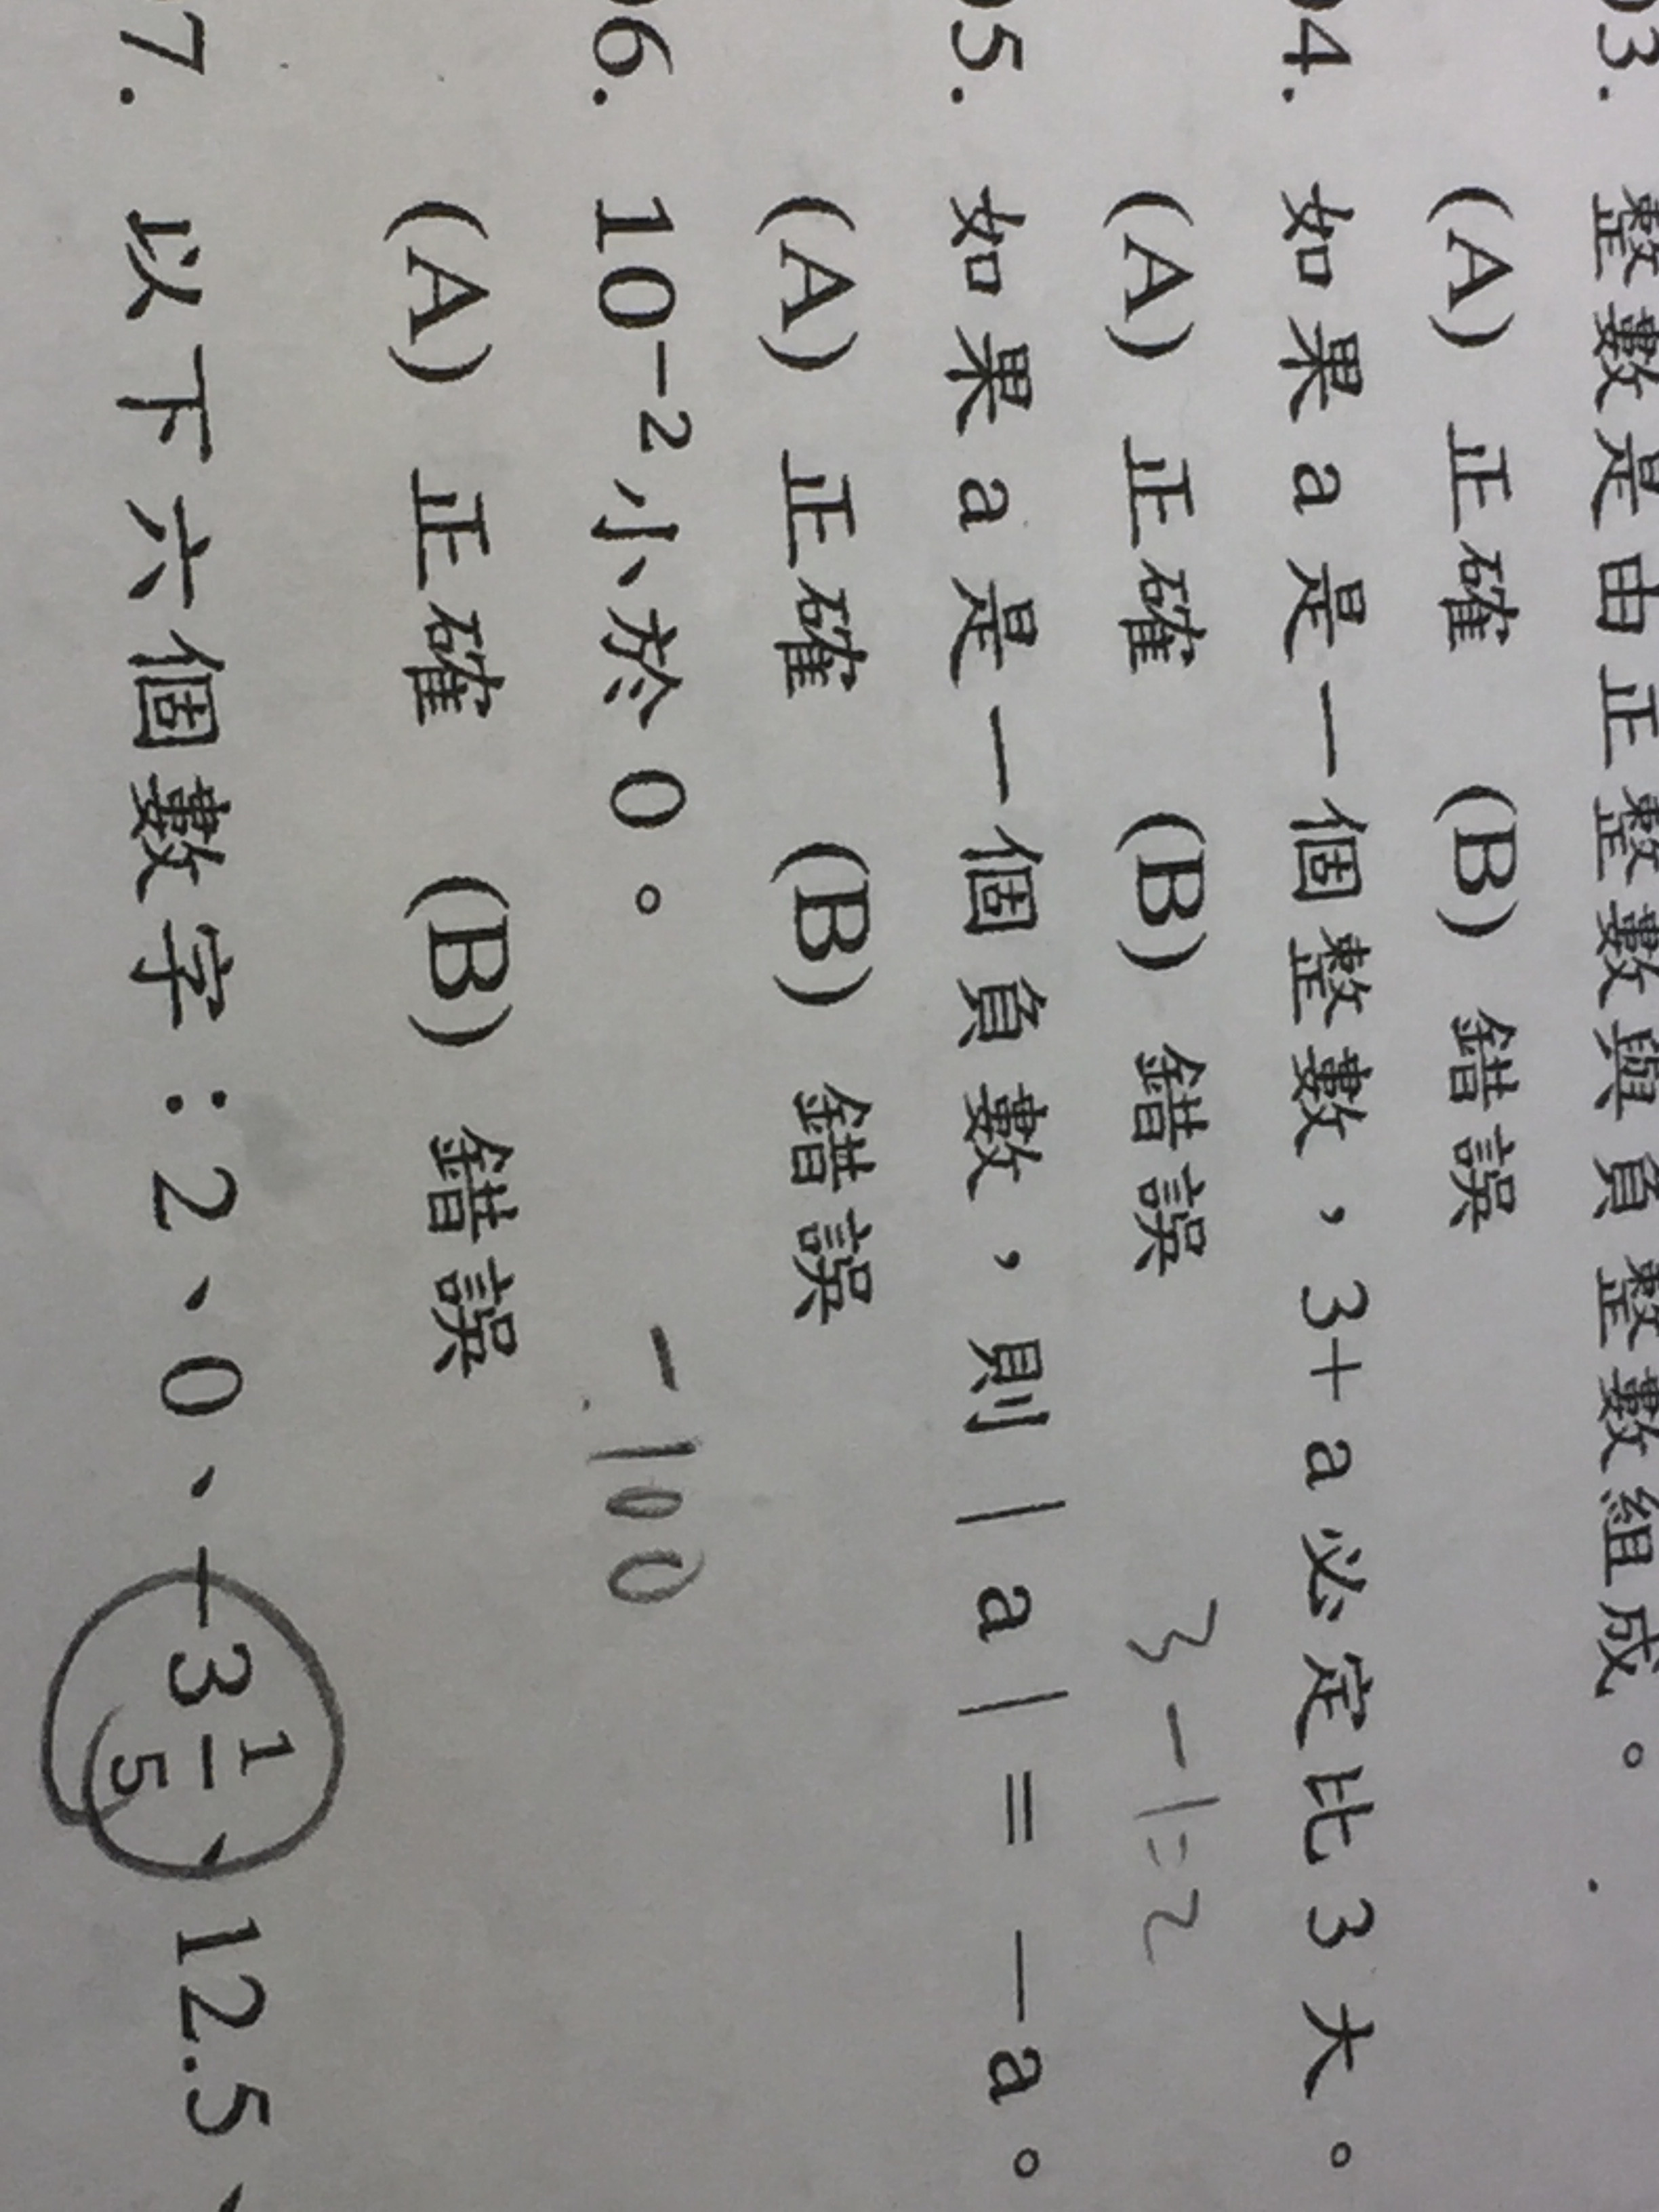 03. 整數是由正整數與負整數組成。
(A) 正確 (B) 錯誤
04. 如果 a 是一個整數，3+a 必定比 3 大。
(A) 正確 (B) 錯誤 3-1=2
05. 如果 a 是一個負數，則｜a｜= －a。
(A) 正確 (B) 錯誤
06. 10⁻²小於 0。 -100
(A) 正確 (B) 錯誤
7. 以下六個數字：2、0、－3 1/5、12.5、